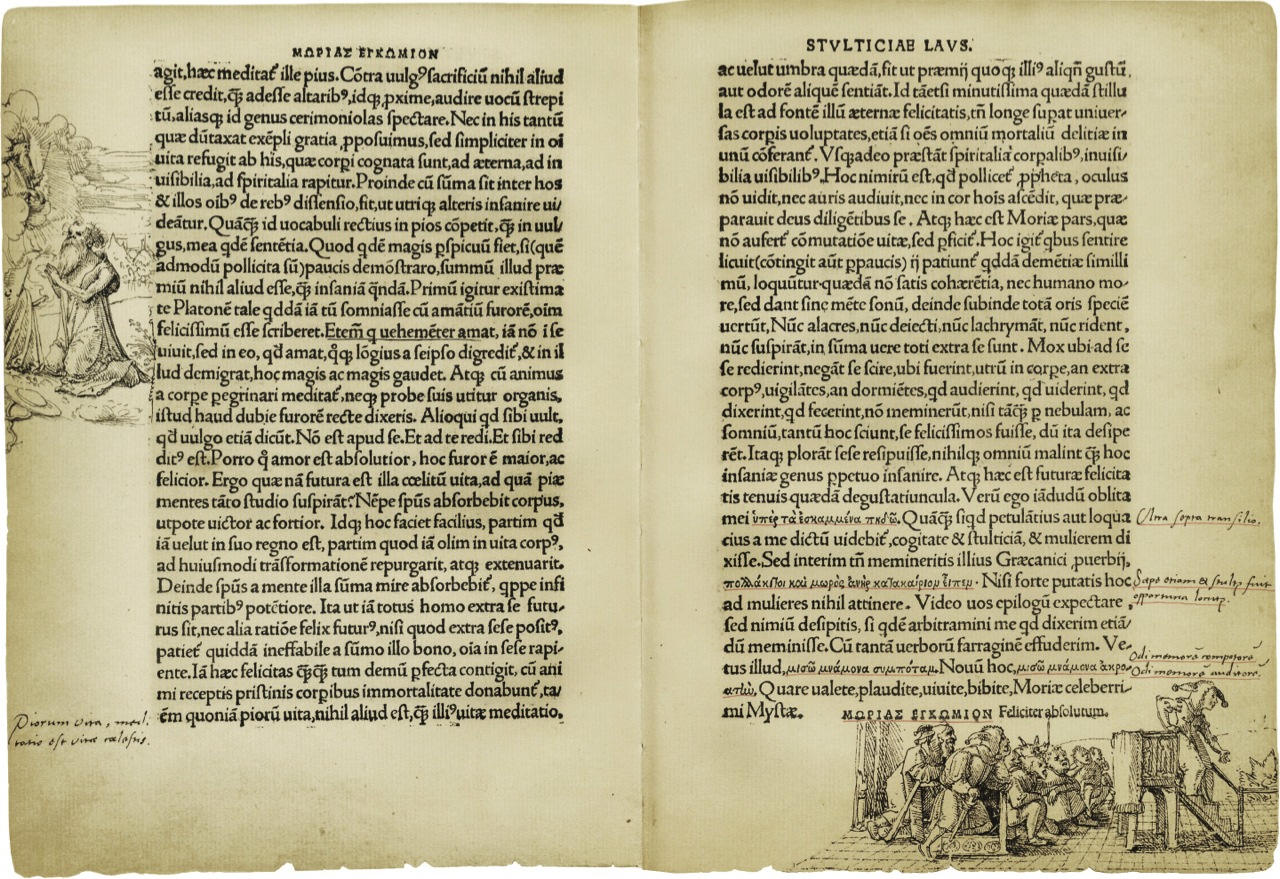 ΜΩΡΙΑΣ ΕΓΚΩΜΙΟΝ
agit, hæc meditat᷑ ille pius. Cõtra uulgꝰ sacrificiũ nihil aliud
esse credit, ꝙ̃ adesse altaribꝰ, idqꝫ ꝓxime, audire uocũ strepi
tũ, aliasqꝫ id genus cerimoniolas spectare. Nec in his tantũ
quæ dũtaxat exẽpli gratia ꝓposuimus, sed simpliciter in oı̃
uita refugit ab his, quæ corꝑi cognata sunt, ad æterna, ad in
uisibilia, ad spiritalia rapitur. Proinde cũ sũma sit inter hos
& illos oı̃bꝰ de rebꝰ dissensio, fit, ut utriqꝫ alteris insanire ui/
deãtur. Quãꝙ̃ id uocabuli rectius in pios cõpetit, ꝙ̃ in uul/
gus, mea qdẽ sentẽtia. Quod qdẽ magis ꝑspicuũ fiet, si (quẽ
admodũ pollicita sũ) paucis demõstraro, summũ illud præ
miũ nihil aliud esse, ꝙ̃ insaniã qñdã. Primũ igitur existima
te Platonẽ tale qddã iã tũ somniasse cũ amãtiũ furorẽ, oı̃m
felicissimũ esse scriberet. Etem̃ q uehemẽter amat, iã nõ ı̃ se
uiuit, sed in eo, qd̃ amat, q̃qꝫ lõgius a seipso digredit᷑, & in il
lud demigrat, hoc magis ac magis gaudet. Atqꝫ cũ animus
a corꝑe ꝑegrinari meditat᷑, neqꝫ probe suis utitur organis,
istud haud dubie furorẽ recte dixeris. Alioqui qd sibi uult,
qd̃ uulgo etiã dicũt. Nõ est apud se. Et ad te redi. Et sibi red
ditꝰ est. Porro q̃ amor est absolutior, hoc furor ẽ maior, ac
felicior. Ergo quæ nã futura est illa cœlitũ uita, ad quã piæ
mentes tãto studio suspirãt? Nẽpe sp̃us absorbebit corpus,
utpote uictor ac fortior. Idqꝫ hoc faciet facilius, partim qd̃
iã uelut in suo regno est, partim quod iã olim in uita corpꝰ,
ad huiusmodi trãsformationẽ repurgarit, atqꝫ extenuarit.
Deinde sp̃us a mente illa sũma mire absorbebit᷑, qppe infi
nitis partibꝰ potẽtiore. Ita ut iã totus homo extra se futu/
rus sit, nec alia ratiõe felix futurꝰ, nisi quod extra sese positꝰ,
patiet᷑ quiddã ineffabile a sũmo illo bono, oı̃a in sese rapi/
ente. Iã hæc felicitas ꝙ̃ꝙ̃ tum demũ ꝑfecta contigit, cũ ani
mi receptis pristinis corꝑibus immortalitate donabunt᷑, ta/
mẽm quoniã piorũ uita, nihil aliud est, ꝙ̃ illiꝰ uitæ meditatio,
Piorum vita, med⸗
tatio est vitæ cœlestis.
STVLTICIAE LAVS.
ac uelut umbra quædã, fit ut præmij quoqꝫ illiꝰ aliqñ gustũ,
aut odorẽ aliquẽ sentiãt. Id tãetsi minutissima quædã stillu
la est ad fontẽ illũ æternæ felicitatis, tñ longe suꝑat uniuer/
sas corꝑis uoluptates, etiã si oẽs omniũ mortaliũ delitiæ in
unũ cõferant᷑. Vsqꝫadeo præstãt spiritalia corꝑalibꝰ, inuisi/
bilia uisibilibꝰ. Hoc nimirũ est, qd̃ pollicet᷑ ꝓpheta, oculus
nõ uidit, nec auris audiuit, nec in cor hoı̃s ascẽdit, quæ præ/
parauit deus diligẽtibus se. Atqꝫ hæc est Moriæ pars, quæ
nõ aufert᷑ cõmutatiõe uitæ, sed ꝑficit᷑. Hoc igit᷑ qbus sentire
licuit (cõtingit aũt ꝑpaucis) ij patiunt᷑ qddã demẽtiæ simılli
mũ, loquũtur quædã nõ satis cohærẽtia, nec humano mo/
re, sed dant sine mẽte sonũ, deinde subinde totã oris speciẽ
uertũt, Nũc alacres, nũc deiecti, nũc lachrymãt, nũc rident,
nũc suspirãt, in sũma uere toti extra se sunt. Mox ubi ad se
se redierint, negãt se scire, ubi fuerint, utrũ in corꝑe, an extra
corpꝰ, uigilãtes, an dormiẽtes, qd audierint, qd uiderint, qd
dixerint, qd fecerint, nõ meminerũt, nisi tãꝙ̃ ꝑ nebulam, ac
somniũ, tantũ hoc sciunt, se felicissimos fuisse, dũ ita desipe
rẽt. Itaqꝫ plorãt sese resipuisse, nihilqꝫ omniũ malint ꝙ̃ hoc
insaniæ genus ꝑpetuo insanire. Atqꝫ hæc est futuræ felicita
tis tenuis quædã degustatiuncula. Verũ ego iãdudũ oblita
mei ὑπὲρ τὰ ἐσκαμμένα πηδῶ. Quãꝙ̃ siqd petulãtius aut loqua
cius a me dictũ uidebit᷑, cogitate & stulticiã, & mulierem di
xisse. Sed interim tñ memineritis illius Græcanici ꝓuerbij,
πολλάκι τοι καὶ μωρὸς ἀνὴρ κατακαίριον εἶπεν. Nisi forte putatis hoc
ad mulieres nihil attinere. Video uos epilogũ expectare,
sed nimiũ desipitis, si qdẽ arbitramini me qd dixerim etiã/
dũ meminisse. Cũ tantã uerborũ farraginẽ effuderim. Ve/
tus illud, μισῶ μνάμονα συμπόταν. Nouũ hoc, μισῶ μνάμονα ἀκρο
ατὴν, Quare ualete, plaudite, uiuite, bibite, Moriæ celeberri/
mi Mystæ. ΜΩΡΙΑΣ ΕΓΚΩΜΙΟΝ Feliciter absolutum.
sopra transilio.
Sæpe etiam & stult9 fuit
opportuna
Odi memorẽ compotorẽ
Odi memorẽ auditorẽ.